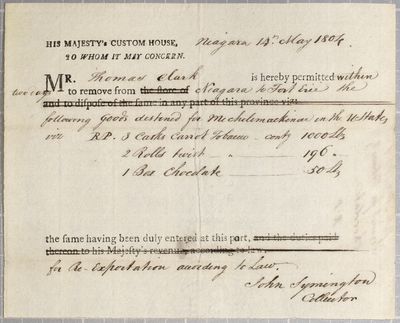 HIS MAJESTY's CUSTOM HOUSE, Niagara 14th May 1804.
TO WHOM IT MAY CONCERN.
MR. Thomas Clark is hereby permitted within
two days to remove from the store of Niagara to Fort Erie the
and to dispose of the same in any part of this province viz.
following Goods destined for Michelemackenac in the U States
viz R.P. 3 Casks Carrot Tobacco contg 1000 lbs
2 Rolls twist " 196 "
1 Box Chocolate 50 lbs
the same having been duly entered at this port, and the duties paid
thereon to his Majesty's revenue, according to law.
for Re-Exportation according to Law.
John Symington
Collector